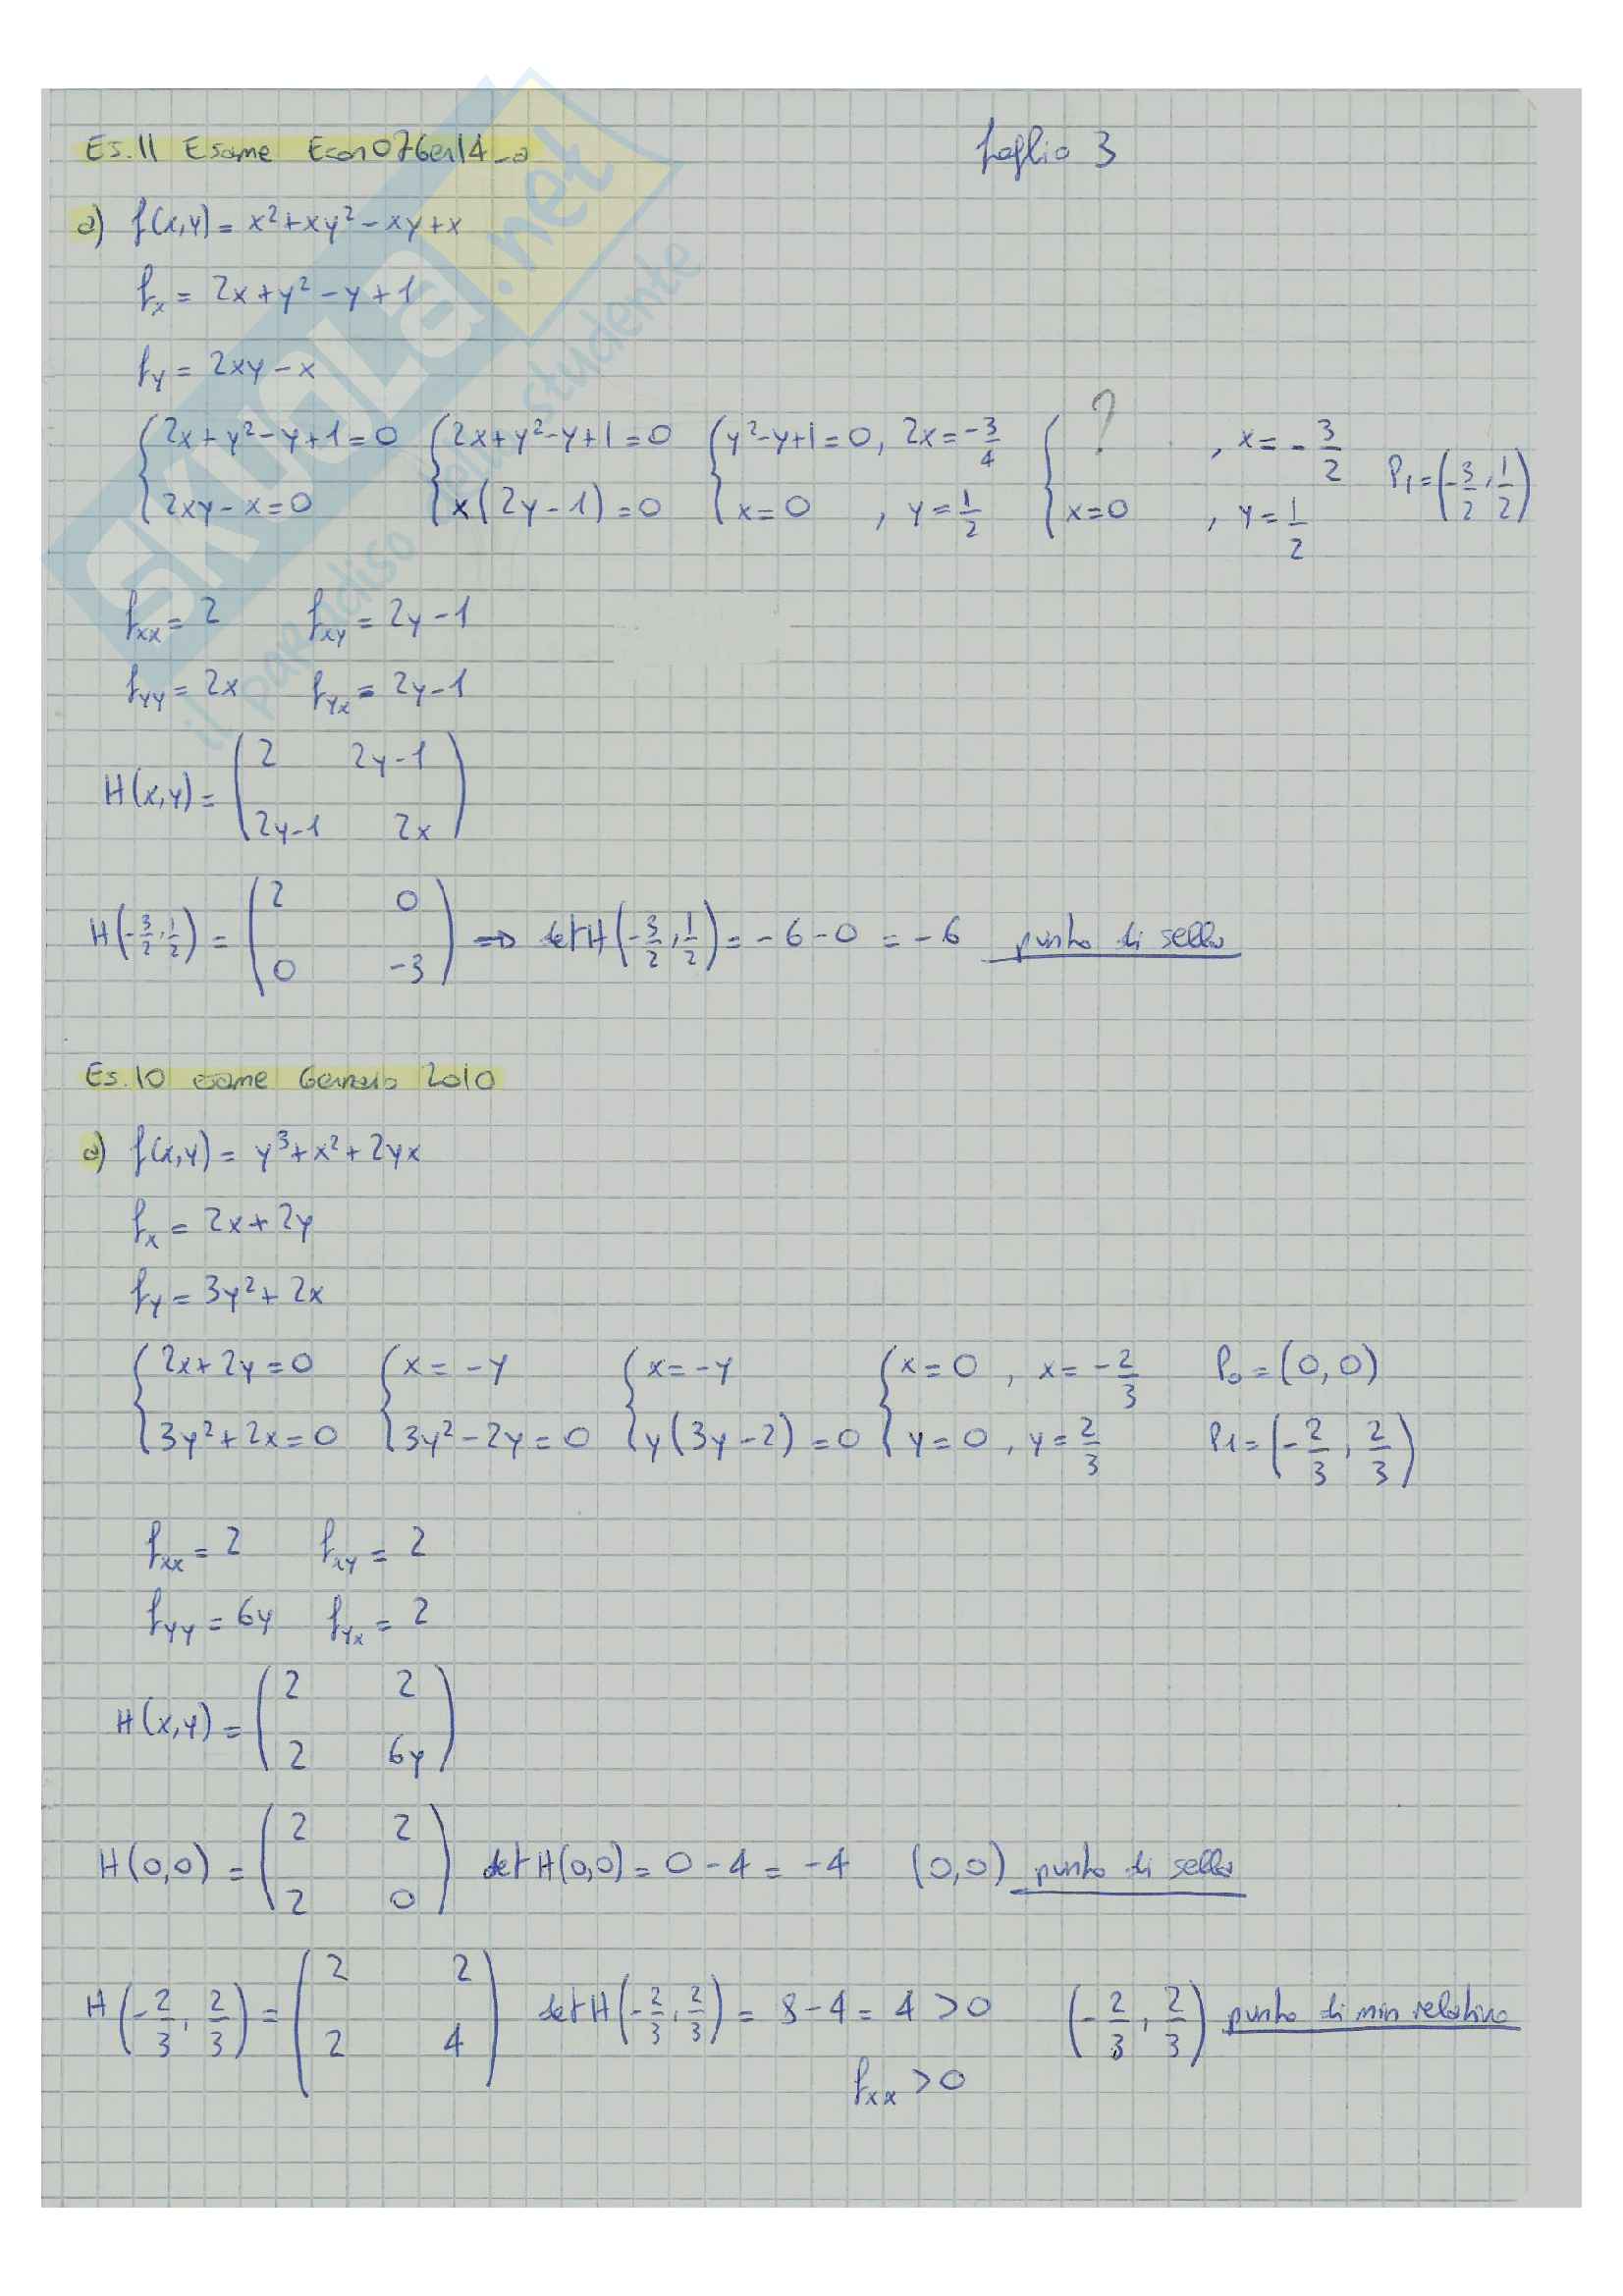 Es.11 Esame Econ07Gen14_a
foglio 3
a) f(x,y) = x²+xy²-xy+x
fx = 2x+y²-y+1
fy = 2xy-x
{2x+y²-y+1=0 {2x+y²-y+1=0 {y²-y+1=0, 2x=-3/4 { ? , x=-3/2
{2xy-x=0 {x(2y-1)=0 {x=0 , y=1/2 {x=0 , y=1/2 P₁=(-3/2, 1/2)
fxx = 2 fxy = 2y-1
fyy = 2x fyx = 2y-1
H(x,y) = (2 2y-1
2y-1 2x)
H(-3/2, 1/2) = (2 0
0 -3) => det H(-3/2, 1/2) = -6-0 = -6 punto di sella
Es.10 esame Gennaio 2010
a) f(x,y) = y³+x²+2yx
fx = 2x+2y
fy = 3y²+2x
{2x+2y=0 {x=-y {x=-y {x=0 , x=-2/3 P₀=(0,0)
{3y²+2x=0 {3y²-2y=0 {y(3y-2)=0 {y=0 , y=2/3 P1=(-2/3, 2/3)
fxx = 2 fxy = 2
fyy = 6y fyx = 2
H(x,y) = (2 2
2 6y)
H(0,0) = (2 2
2 0) det H(0,0) = 0-4 = -4 (0,0) punto di sella
H(-2/3, 2/3) = (2 2
2 4) det H(-2/3, 2/3) = 8-4 = 4 >0 (-2/3, 2/3) punto di min relativo
fxx >0
SKUOLA.net
il paradiso dello studente